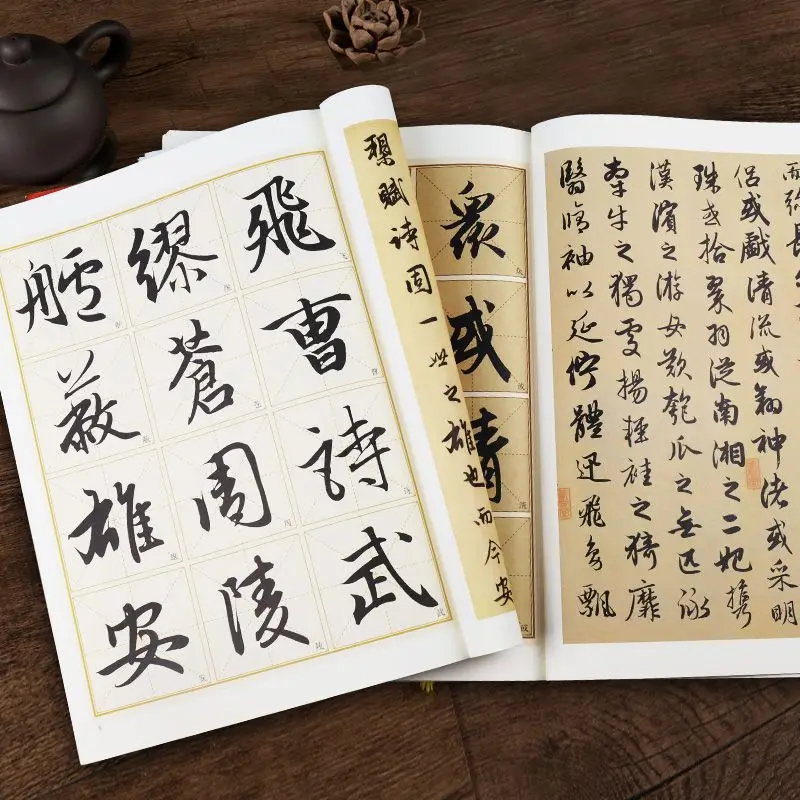 飛曹詩武
繆蒼周陵
艫蔽雄安
槊賦詩固一世之雄也而今安
衆或清
侶或戲清流或翔神渚或采明
珠或拾翠羽從南湘之二妃攜
漢濱之游女歎匏瓜之無匹詠
牽牛之獨處揚輕袿之猗靡
翳脩袖以延佇體迅飛鳧飄